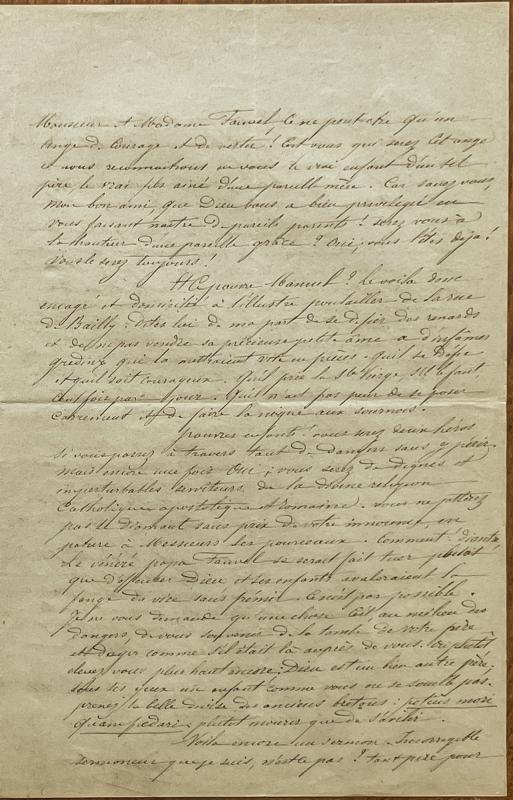 Monsieur et Madame Fauvel, ce ne peut être qu'un
ange de courage et de vertu ! C'est vous qui serez cet ange
et nous reconnaîtrons en vous le vrai enfant d'un tel
père le vrai fils ainé d'une pareille mère. Car savez vous,
mon bon ami, que Dieu vous a bien privilégié en
vous faisant naître de pareils parents ! serez vous à
la hauteur d'une pareille grâce ? Oui, vous l'êtes déjà !
vous le serez toujours !
Et ce pauvre Manuel ? Le voilà donc
encagé et domicilié à l'illustre poulailler de la rue
du Bailly. Dites lui de ma part de se défier des renards
et de ne pas vendre sa précieuse petite âme à d'infâmes
gredins qui la mettraient vite en pièces. qu'il se défie
et qu'il soit courageux. Qu'il prie la Ste Vierge, s'il le faut,
cent fois par jour. Qu'il n'ait pas peur de se poser
carrément et de faire la nique aux sournois.
Pauvres enfants ! vous serez deux héros
si vous passez à travers tant de dangers sans y périr.
mais encore une fois Oui ; vous serez de dignes et
imperturbables serviteurs de la divine religion
Catholique apostolique et romaine. vous ne jetterez
pas le diamant sans prix de votre innocence, en
pature à Messieurs les pourceaux. Comment ! diantre
Le vénéré papa Fauvel se serait fait tuer plutôt
que d'offenser Dieu et ses enfants avaleraient la
fange du vice sans frémir. Ce n'est pas possible.
Je ne vous demande qu'une chose. C'est au milieu des
dangers, de vous souvenir de la tombe de votre père
et d'agir comme s'il était là auprès de vous. ou plutôt
élevez vous plus haut encore ; Dieu est un bien autre père ;
sous ses yeux un enfant comme vous ne se souille pas.
prenez la belle devise des anciens bretons : potius mori
quam foedari : plutôt mourir que de
Voilà encore un sermon. Incorrigible
sermonneur que je suis, n'est-ce pas ? tant pire pour